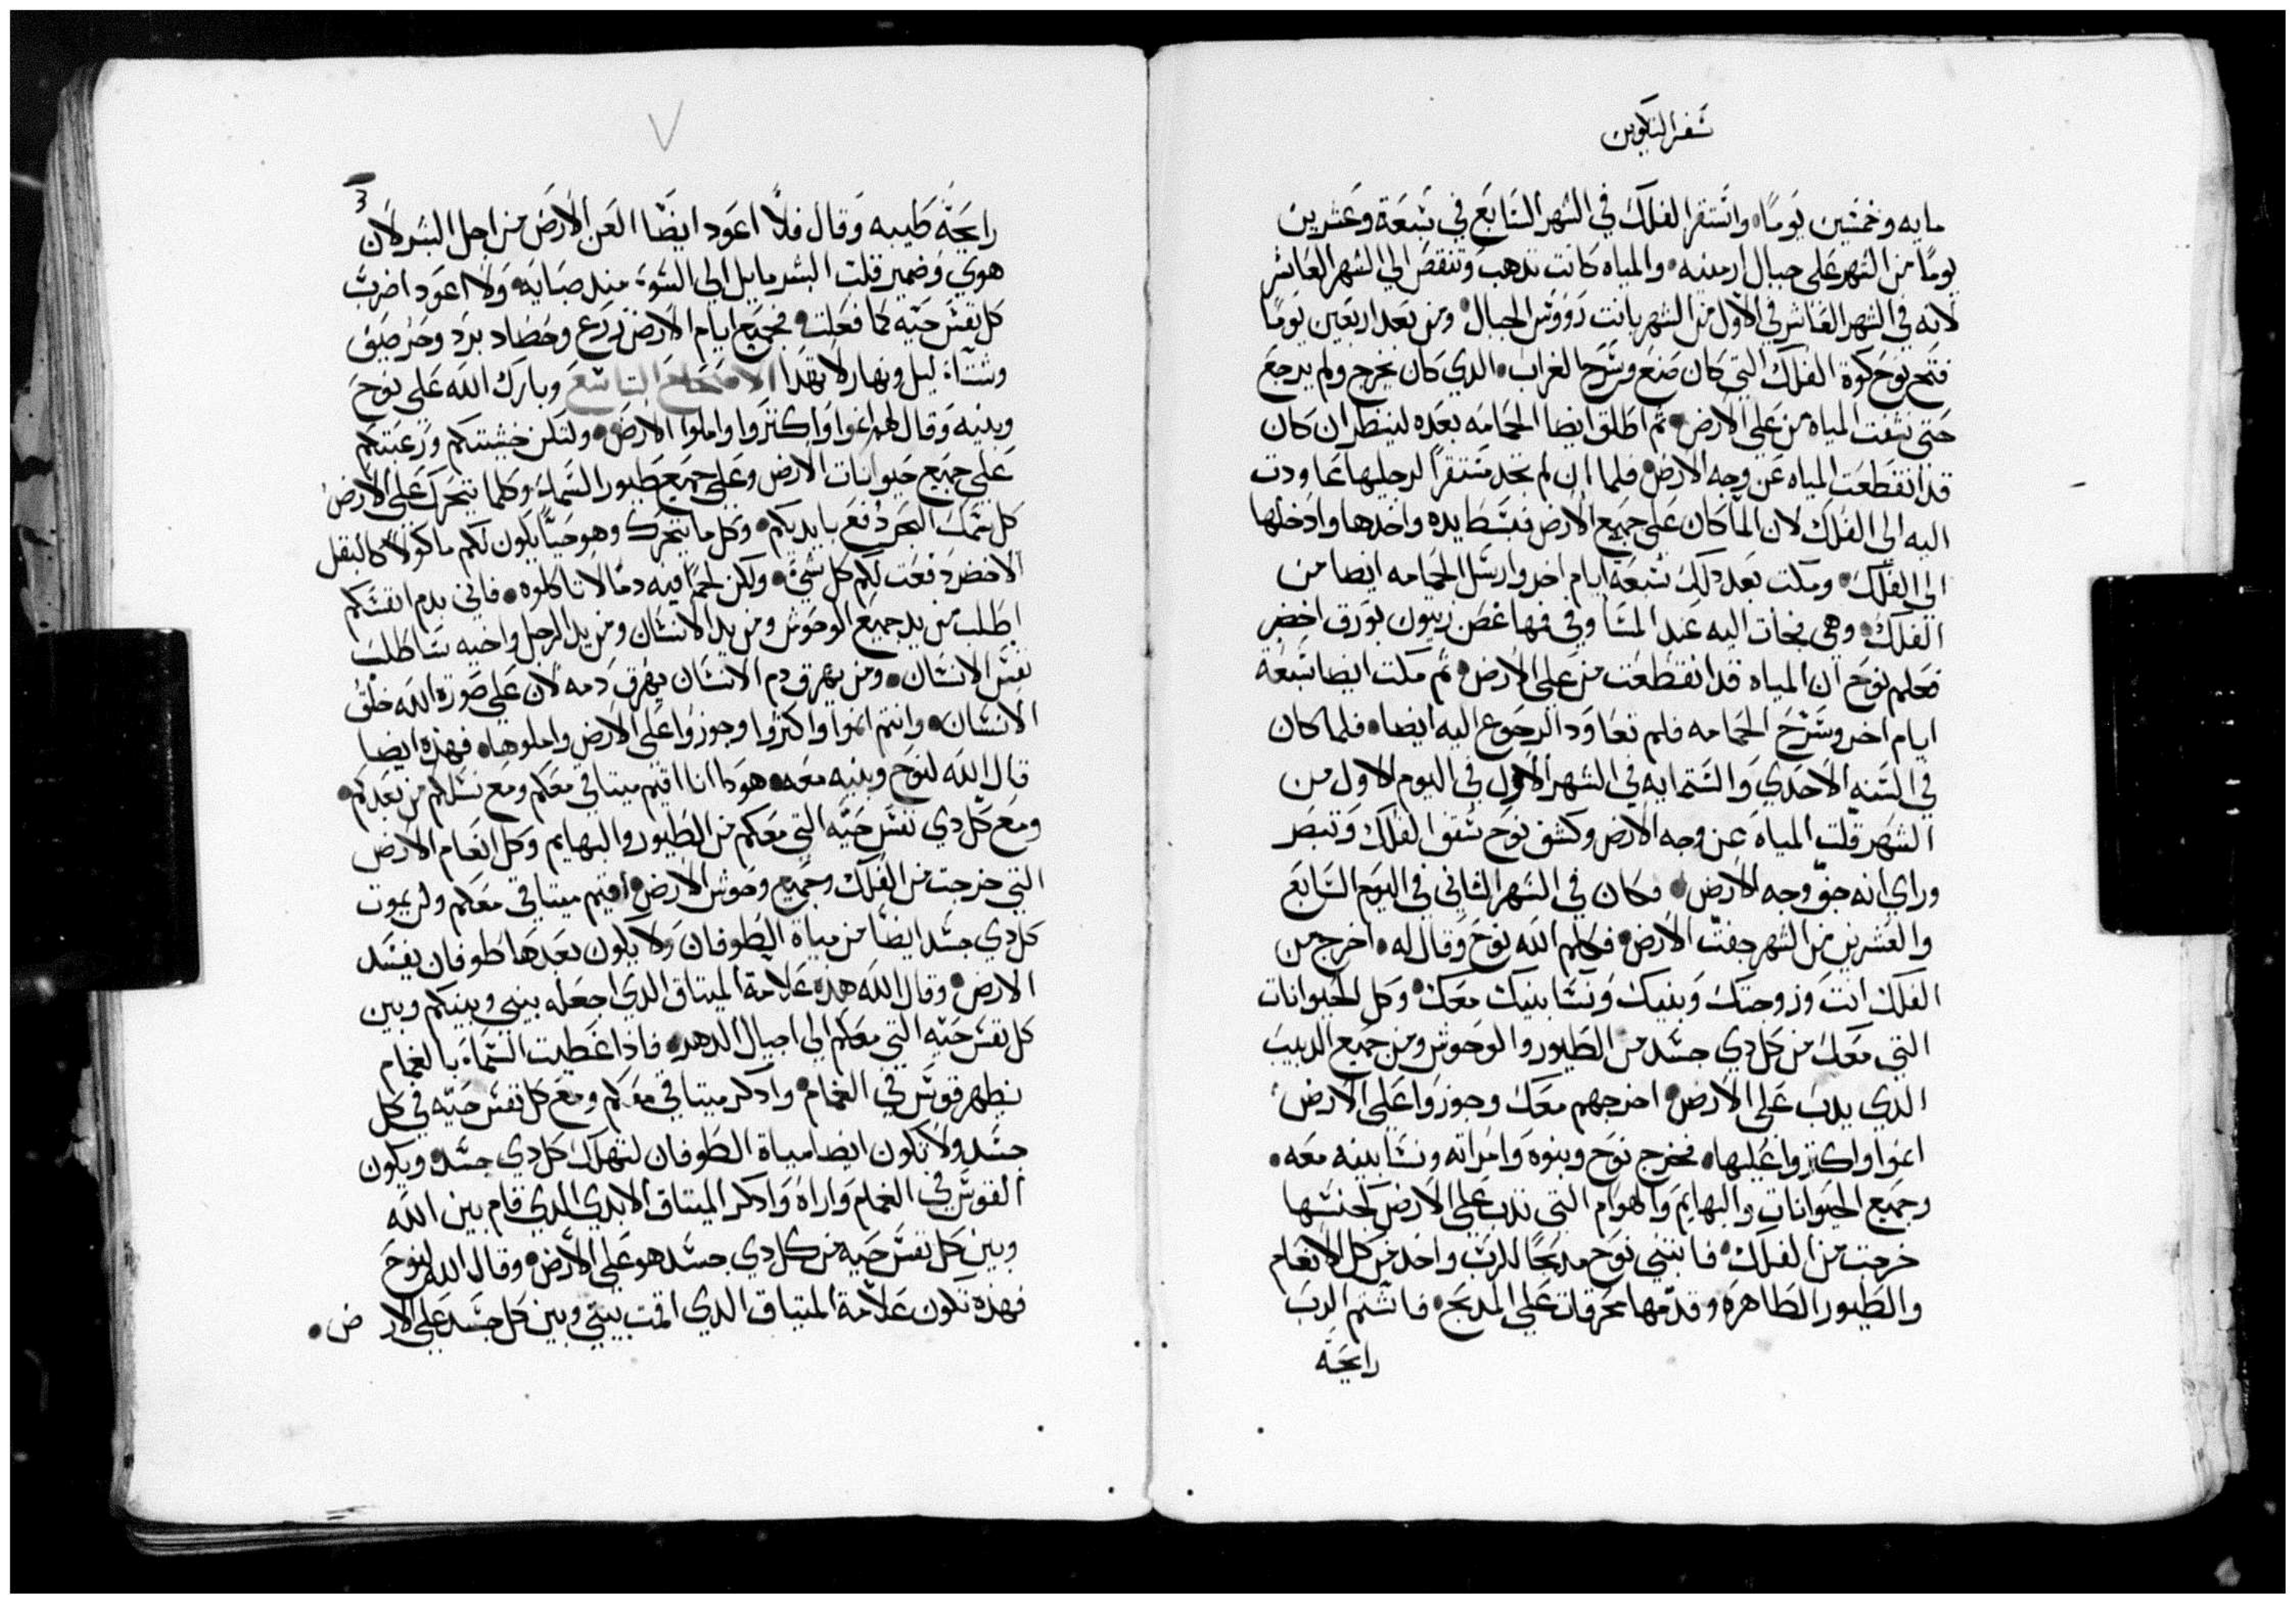 سفر التكوين
مايه وخمسين يومًا واستقر الفلك في الشهر السابع في سبعة وعشرين
يومًا من الشهر على جبال ارمنيه والمياه كانت تذهب وتنقص الى الشهر العاشر
لانه في الشهر العاشر في الاول من الشهر بانت رووس الجبال ومن بعد اربعين يومًا
فتح نوح كوة الفلك التي كان صنع وسرح الغراب الدي كان يخرج ولم يرجع
حتى نشفت المياه من على الارض ثم اطلق ايضا الحمامه بعده لينظر ان كان
قد انقطعت المياه عن وجه الارض فلما ان لم تجد مستقرًا لرجليها عاودت
اليه الى الفلك لان الما كان على جميع الارض فبسط يده واخدها وادخلها
الى الفلك ومكت بعد دلك سبعه ايام اخر وارسل الحمامه ايضا من
الفلك وهي فجات اليه عند المسا وفي فمها غصن زيتون بورق اخضر
فعلم نوح ان المياه قد انقطعت من على الارض ثم مكت ايضا سبعة
ايام اخر وسرح الحمامه فلم تعاود الرجوع اليه ايضا فلما كان
في السنه الاحدي والستمايه في الشهر الاول في اليوم الاول من
الشهر قلت المياه عن وجه الارض وكشف نوح سقف الفلك وتبصر
وراي انه جف وجه الارض وكان في الشهر الثاني في اليوم السابع
والعشرين من الشهر جفت الارض فكلم الله نوح وقال له اخرج من
الفلك انت وزوجتك وبنيك ونسا بنيك معك وكل الحيوانات
التي معك من كل دي جسد من الطيور والوحوش ومن جميع الدبيب
الدي يدب على الارض اخرجهم معك وجوزوا على الارض
انموا واكتروا عليها فخرج نوح وبنوه وامراته ونسا بنيه معه
وجميع الحيوانات والبهايم والهوام التي تدب على الارض كجنسها
خرجت من الفلك فابتنى نوح مدبحًا للرب واخد من كل الانعام
والطيور الطاهره وقدمها محرقات على المدبح فاشتم الرب
رايحة
رايحة طيبه وقال فلا اعود ايضًا العن الارض من اجل البشر لان
هوي وضمير قلب البشر مايل الى السوء منذ صبايه ولا اعود اضرب
كل نفس حيه كما فعلت فجميع ايام الارض زرع وحصاد برد وحر صيف
وشتاء ليل ونهار لا تهدا الاصحاح التاسع وبارك الله على نوح
وبنيه وقال لهم انموا واكتروا واملوا الارض ولتكن خشيتكم ورعبتكم
على جميع حيوانات الارض وعلى جميع طيور السما وكلما يتحرك على الارض
كل سمك البحر دفع بايديكم وكل ما يتحرك وهو حيًا يكون لكم ماكولًا كالبقل
الاخضر دفعت لكم كل شيء ولكن لحمًا فيه دمًا لا تاكلوه فاني بدم انفسكم
اطلب من يد جميع الوحوش ومن يد الانسان ومن يد الرجل واخيه ساطلب
نفس الانسان ومن يهرق دم الانسان يهرق دمه لان على صورة الله خلق
الانسان وانتم انموا واكتروا وجوزوا على الارض واملوها فهذه ايضا
قال الله لنوح وبنيه معه هودا انا اقيم ميتاقي معكم ومع نسلكم من بعدكم
ومع كل دي نفس حيه التي معكم من الطيور والبهايم وكل انعام الارض
التي خرجت من الفلك وجميع وحوش الارض اقيم ميتاقي معكم ولن يموت
كل دي جسد ايضًا من مياة الطوفان ولا يكون بعدها طوفان يفسد
الارض وقال الله هذه علامة الميتاق الدي اجعله بيني وبينكم وبين
كل نفس حيه التي معكم الى اجيال الدهر فاذا غطيت السماء بالغمام
يظهر قوس في الغمام وادكر ميتاقي معكم ومع كل نفس حيه في كل
جسد ولا تكون ايضا مياة الطوفان لتهلك كل دي جسد ويكون
القوس في الغمام واراه وادكر الميتاق الابدي الدي قام بين الله
وبين كل نفس حيه من كل دي جسد هو على الارض وقال الله لنوح
فهذه تكون علامة الميتاق الدي اقمت بيني وبين كل جسد على الارض